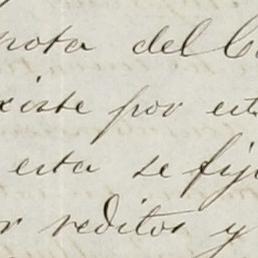 nota del C
xiste por est
esta se fij
or reditos y